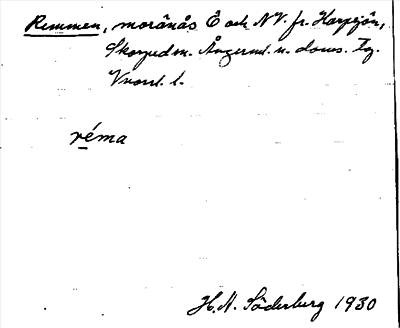 Remmen, moränås Ö och NV. fr. Harpsjön,
Skorped sn. Ångerml. n. doms. Tg.
l.
réma
H. N. Söderberg 1930